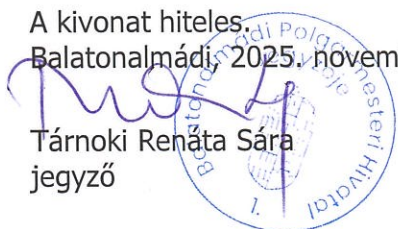 A kivonat hiteles.
Balatonalmádi, 2025. novem
Tárnoki Renáta Sára
jegyző
Balatonalmádi Polgármesteri Hivatal
Jegyzője
1.